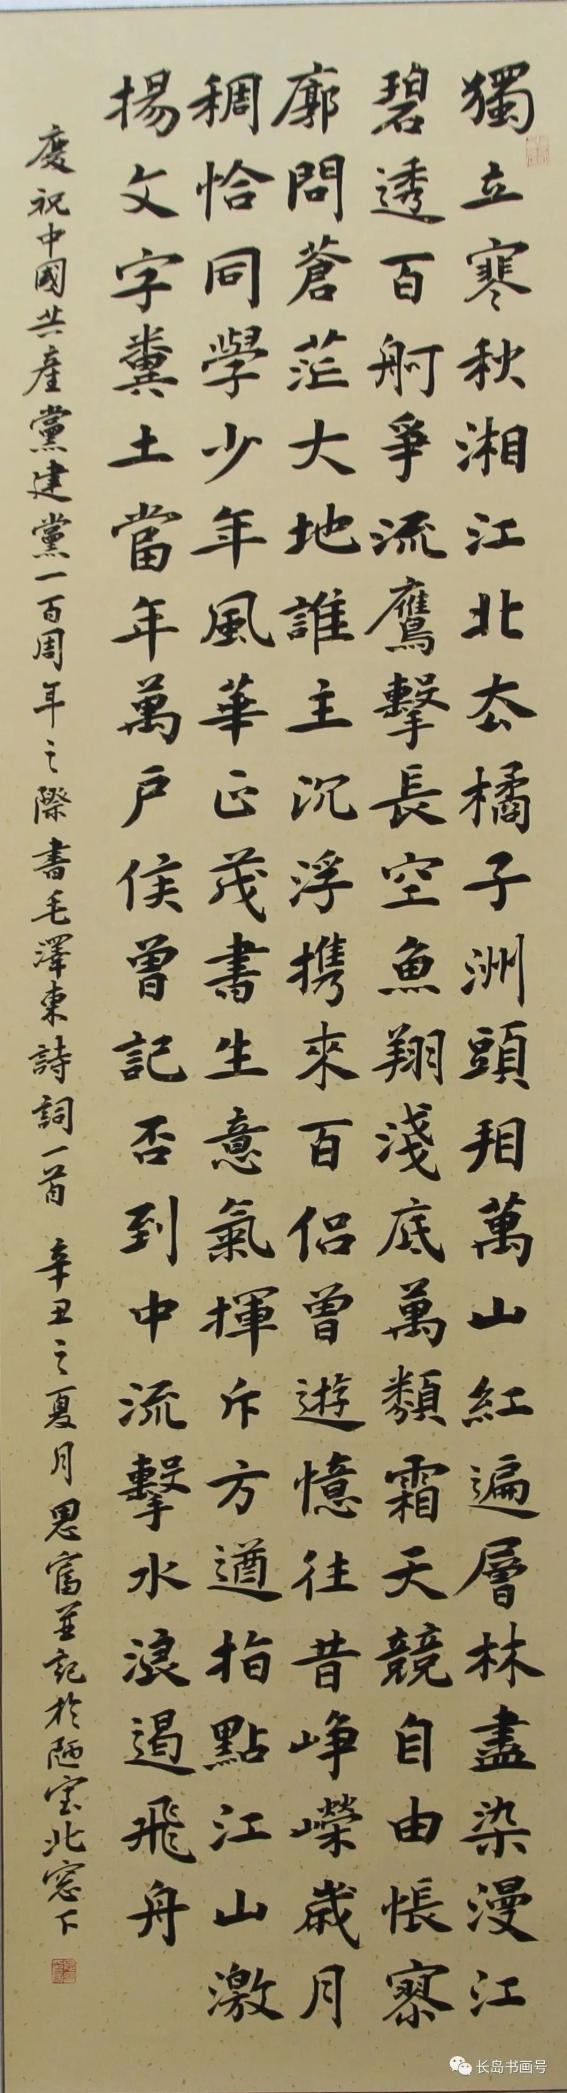 獨立寒秋湘江北去橘子洲頭看萬山紅遍層林盡染漫江
碧透百舸爭流鷹擊長空魚翔淺底萬類霜天競自由悵寥
廓問蒼茫大地誰主沉浮携來百侣曾遊憶往昔崢嶸歲月
稠恰同學少年風華正茂書生意氣揮斥方遒指點江山激
揚文字糞土當年萬户侯曾記否到中流擊水浪遏飛舟
慶祝中國共產黨建黨一百周年之際書毛澤東詩詞一首 辛丑之夏月思富並記於陋室北窓下
长岛书画号